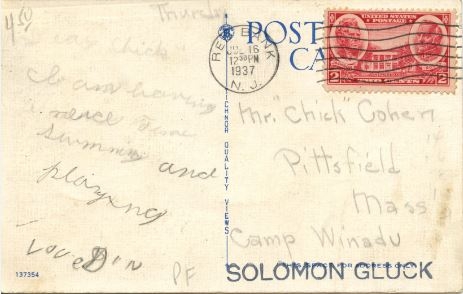 4.50
Thurs
POST
CA
UNITED STATES POSTAGE
2 2
RED BANK
JUL 16
12 30PM
1937
N. J.
Chick
having
nice time
swimming and
playing
Love
PF
137354
TICHNOR QUALITY VIEWS
Mr. "Chick" Cohen
Pittsfield
Mass
Camp Winadu
THIS SPACE FOR ADDRESS ONLY
SOLOMON GLUCK